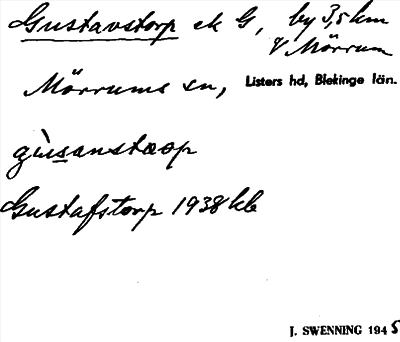 Gustavstorp ek G, by 3,5 km
V Mörrum
Mörrums sn, Listers hd, Blekinge län.
gùsanstorp
Gustafstorp 1938 kb
J. SWENNING 1945